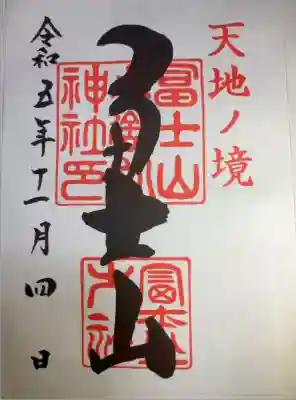 天地ノ境
冨士山
冨士山
神社印
令和五年十一月四日